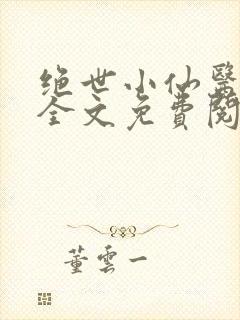 绝世小仙醫
全文免費閱
董雲一